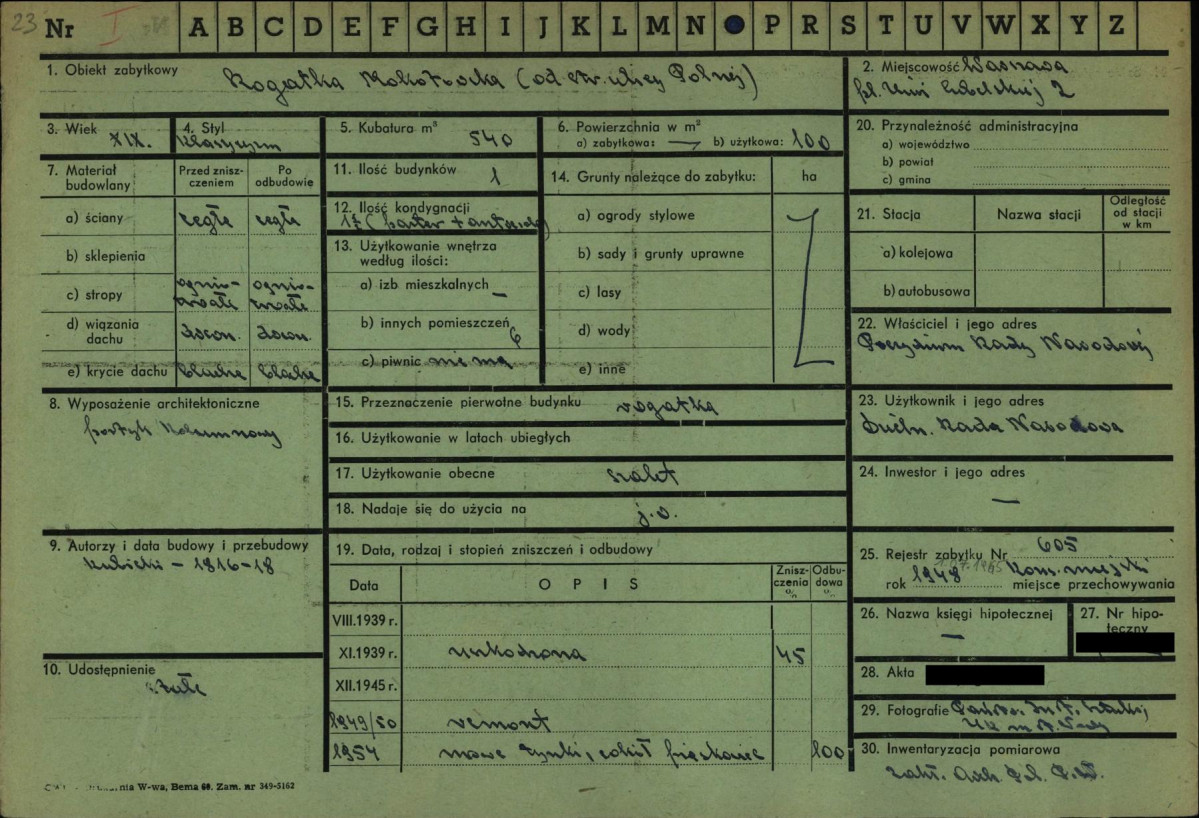 23 Nr I A B C D E F G H I J K L M N P R S T U V W X Y Z
1. Obiekt zabytkowy Rogatka Mokotowska (od str. ulicy Polnej)
2. Miejscowość Warszawa
pl. Unii Lubelskiej 2
3. Wiek XIX.
4. Styl klasycyzm
5. Kubatura m³ 540
6. Powierzchnia w m²
a) zabytkowa: — b) użytkowa: 100
7. Materiał budowlany
Przed zniszczeniem
Po odbudowie
a) ściany cegła cegła
b) sklepienia
c) stropy ognio-trwałe ognio-trwałe
d) wiązania dachu drewn. drewn.
e) krycie dachu blacha blacha
8. Wyposażenie architektoniczne
portyk kolumnowy
9. Autorzy i data budowy i przebudowy
Kubicki – 1816-18
10. Udostępnienie
stałe
11. Ilość budynków 1
12. Ilość kondygnacji
(parter + antresola)
13. Użytkowanie wnętrza według ilości:
a) izb mieszkalnych —
b) innych pomieszczeń 6
c) piwnic nie ma
14. Grunty należące do zabytku: ha
a) ogrody stylowe
b) sady i grunty uprawne
c) lasy
d) wody
e) inne
15. Przeznaczenie pierwotne budynku rogatka
16. Użytkowanie w latach ubiegłych
17. Użytkowanie obecne szalet
18. Nadaje się do użycia na j.w.
19. Data, rodzaj i stopień zniszczeń i odbudowy
Data OPIS Zniszczenia % Odbudowa %
VIII.1939 r.
XI.1939 r. uszkodzona 45
XII.1945 r.
1949/50 remont
1954 nowe tynki, cokół piaskowiec 100
20. Przynależność administracyjna
a) województwo
b) powiat
c) gmina
21. Stacja Nazwa stacji Odległość od stacji w km
a) kolejowa
b) autobusowa
22. Właściciel i jego adres
Prezydium Rady Narodowej
23. Użytkownik i jego adres
Dzieln. Rada Narodowa
24. Inwestor i jego adres
—
25. Rejestr zabytku Nr 605
1.07.1965
rok 1948 Kons. miejski
miejsce przechowywania
26. Nazwa księgi hipotecznej
—
27. Nr hipoteczny
28. Akta
29. Fotografie Państw. Inst. Sztuki
30. Inwentaryzacja pomiarowa
Zakł. Arch. Pol. P.W.
W-wa, Bema 60. Zam. nr 349-5162